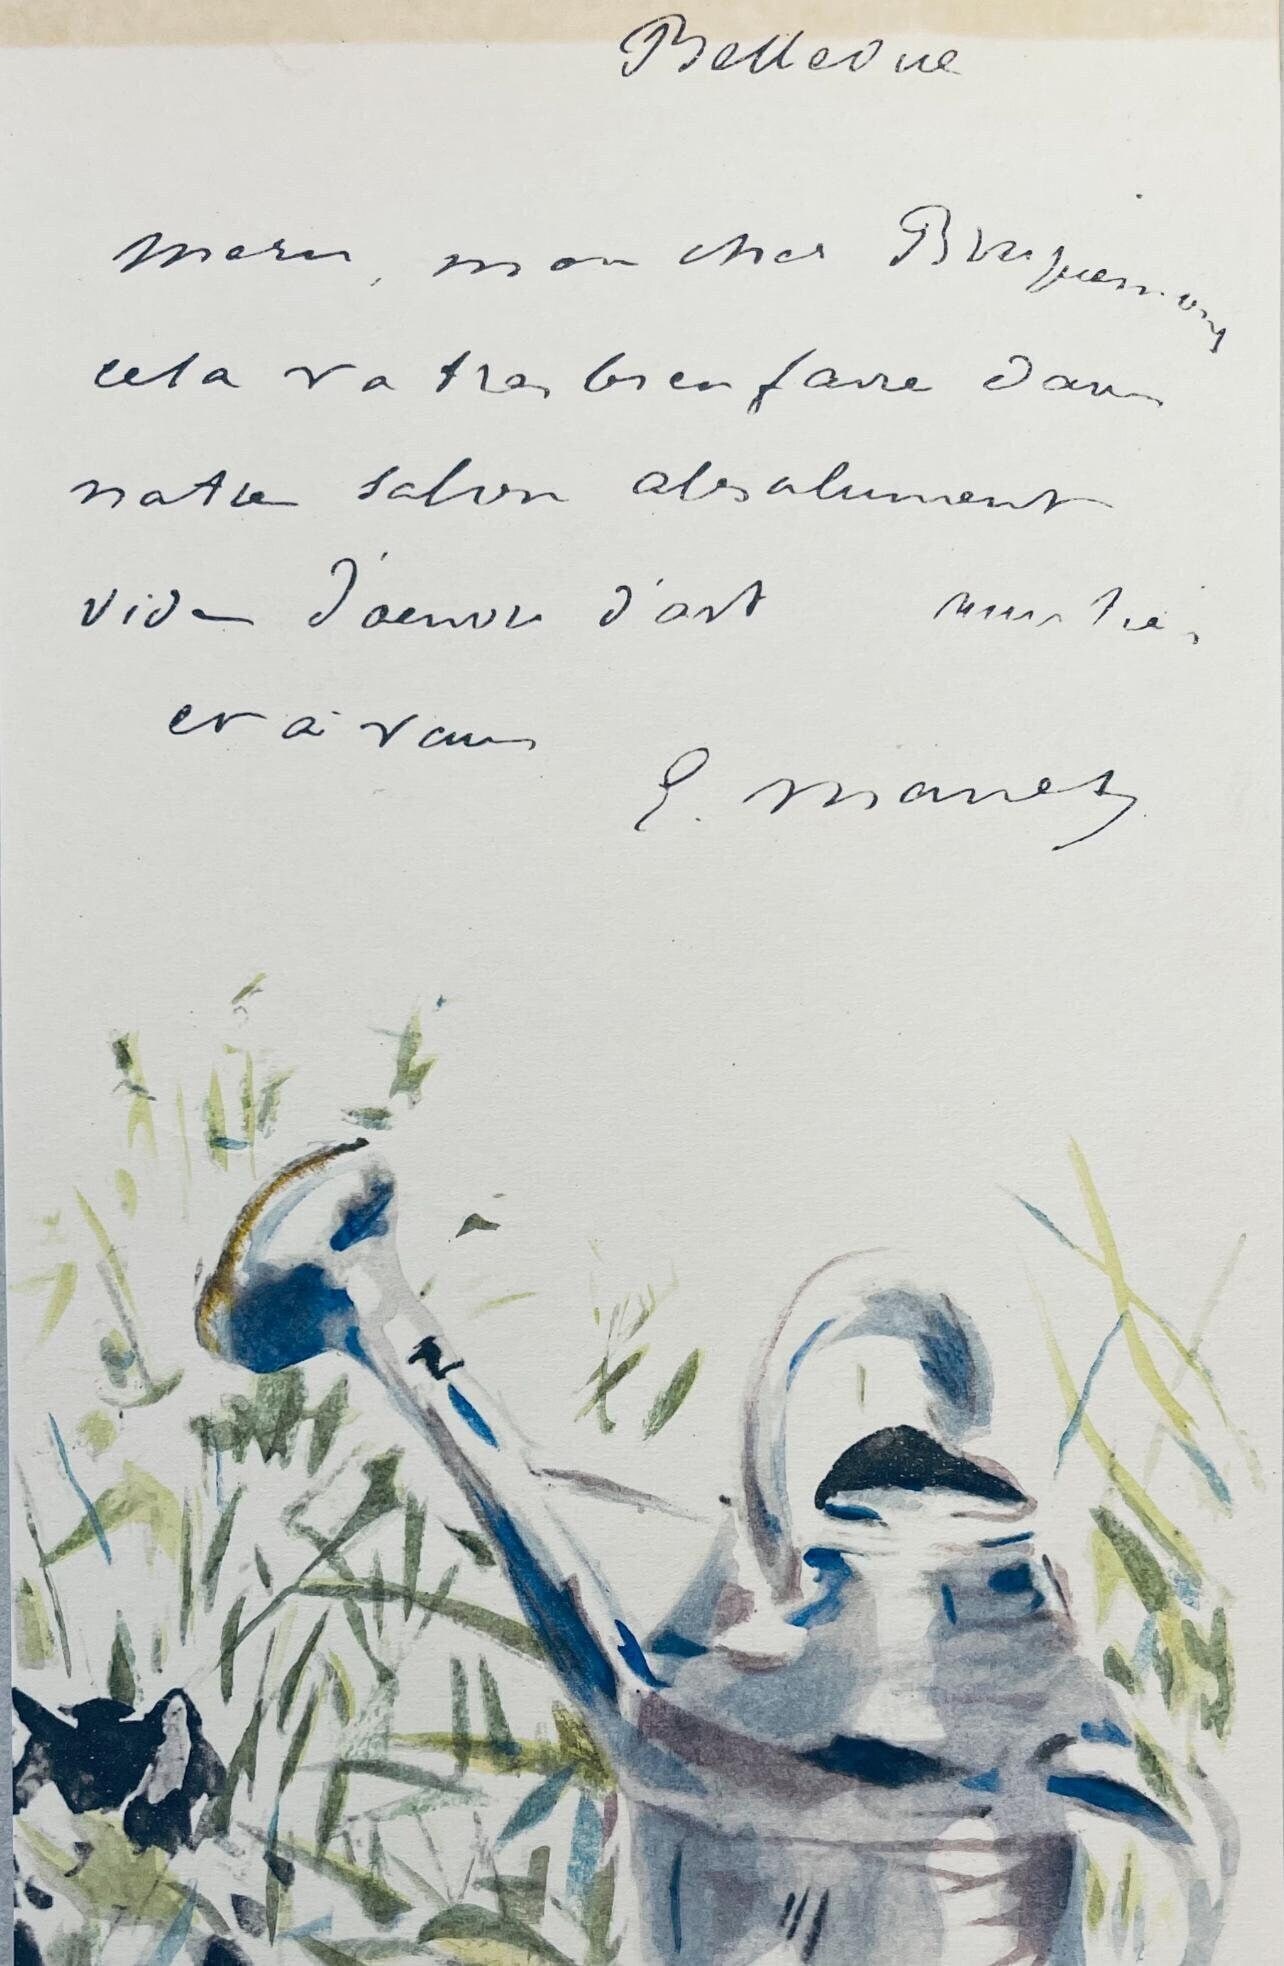 Bellevue
merci, mon cher
cela va tres bien faire dans
notre salon absolument
vide d'oeuvre d'art
et à vous
E. Manet